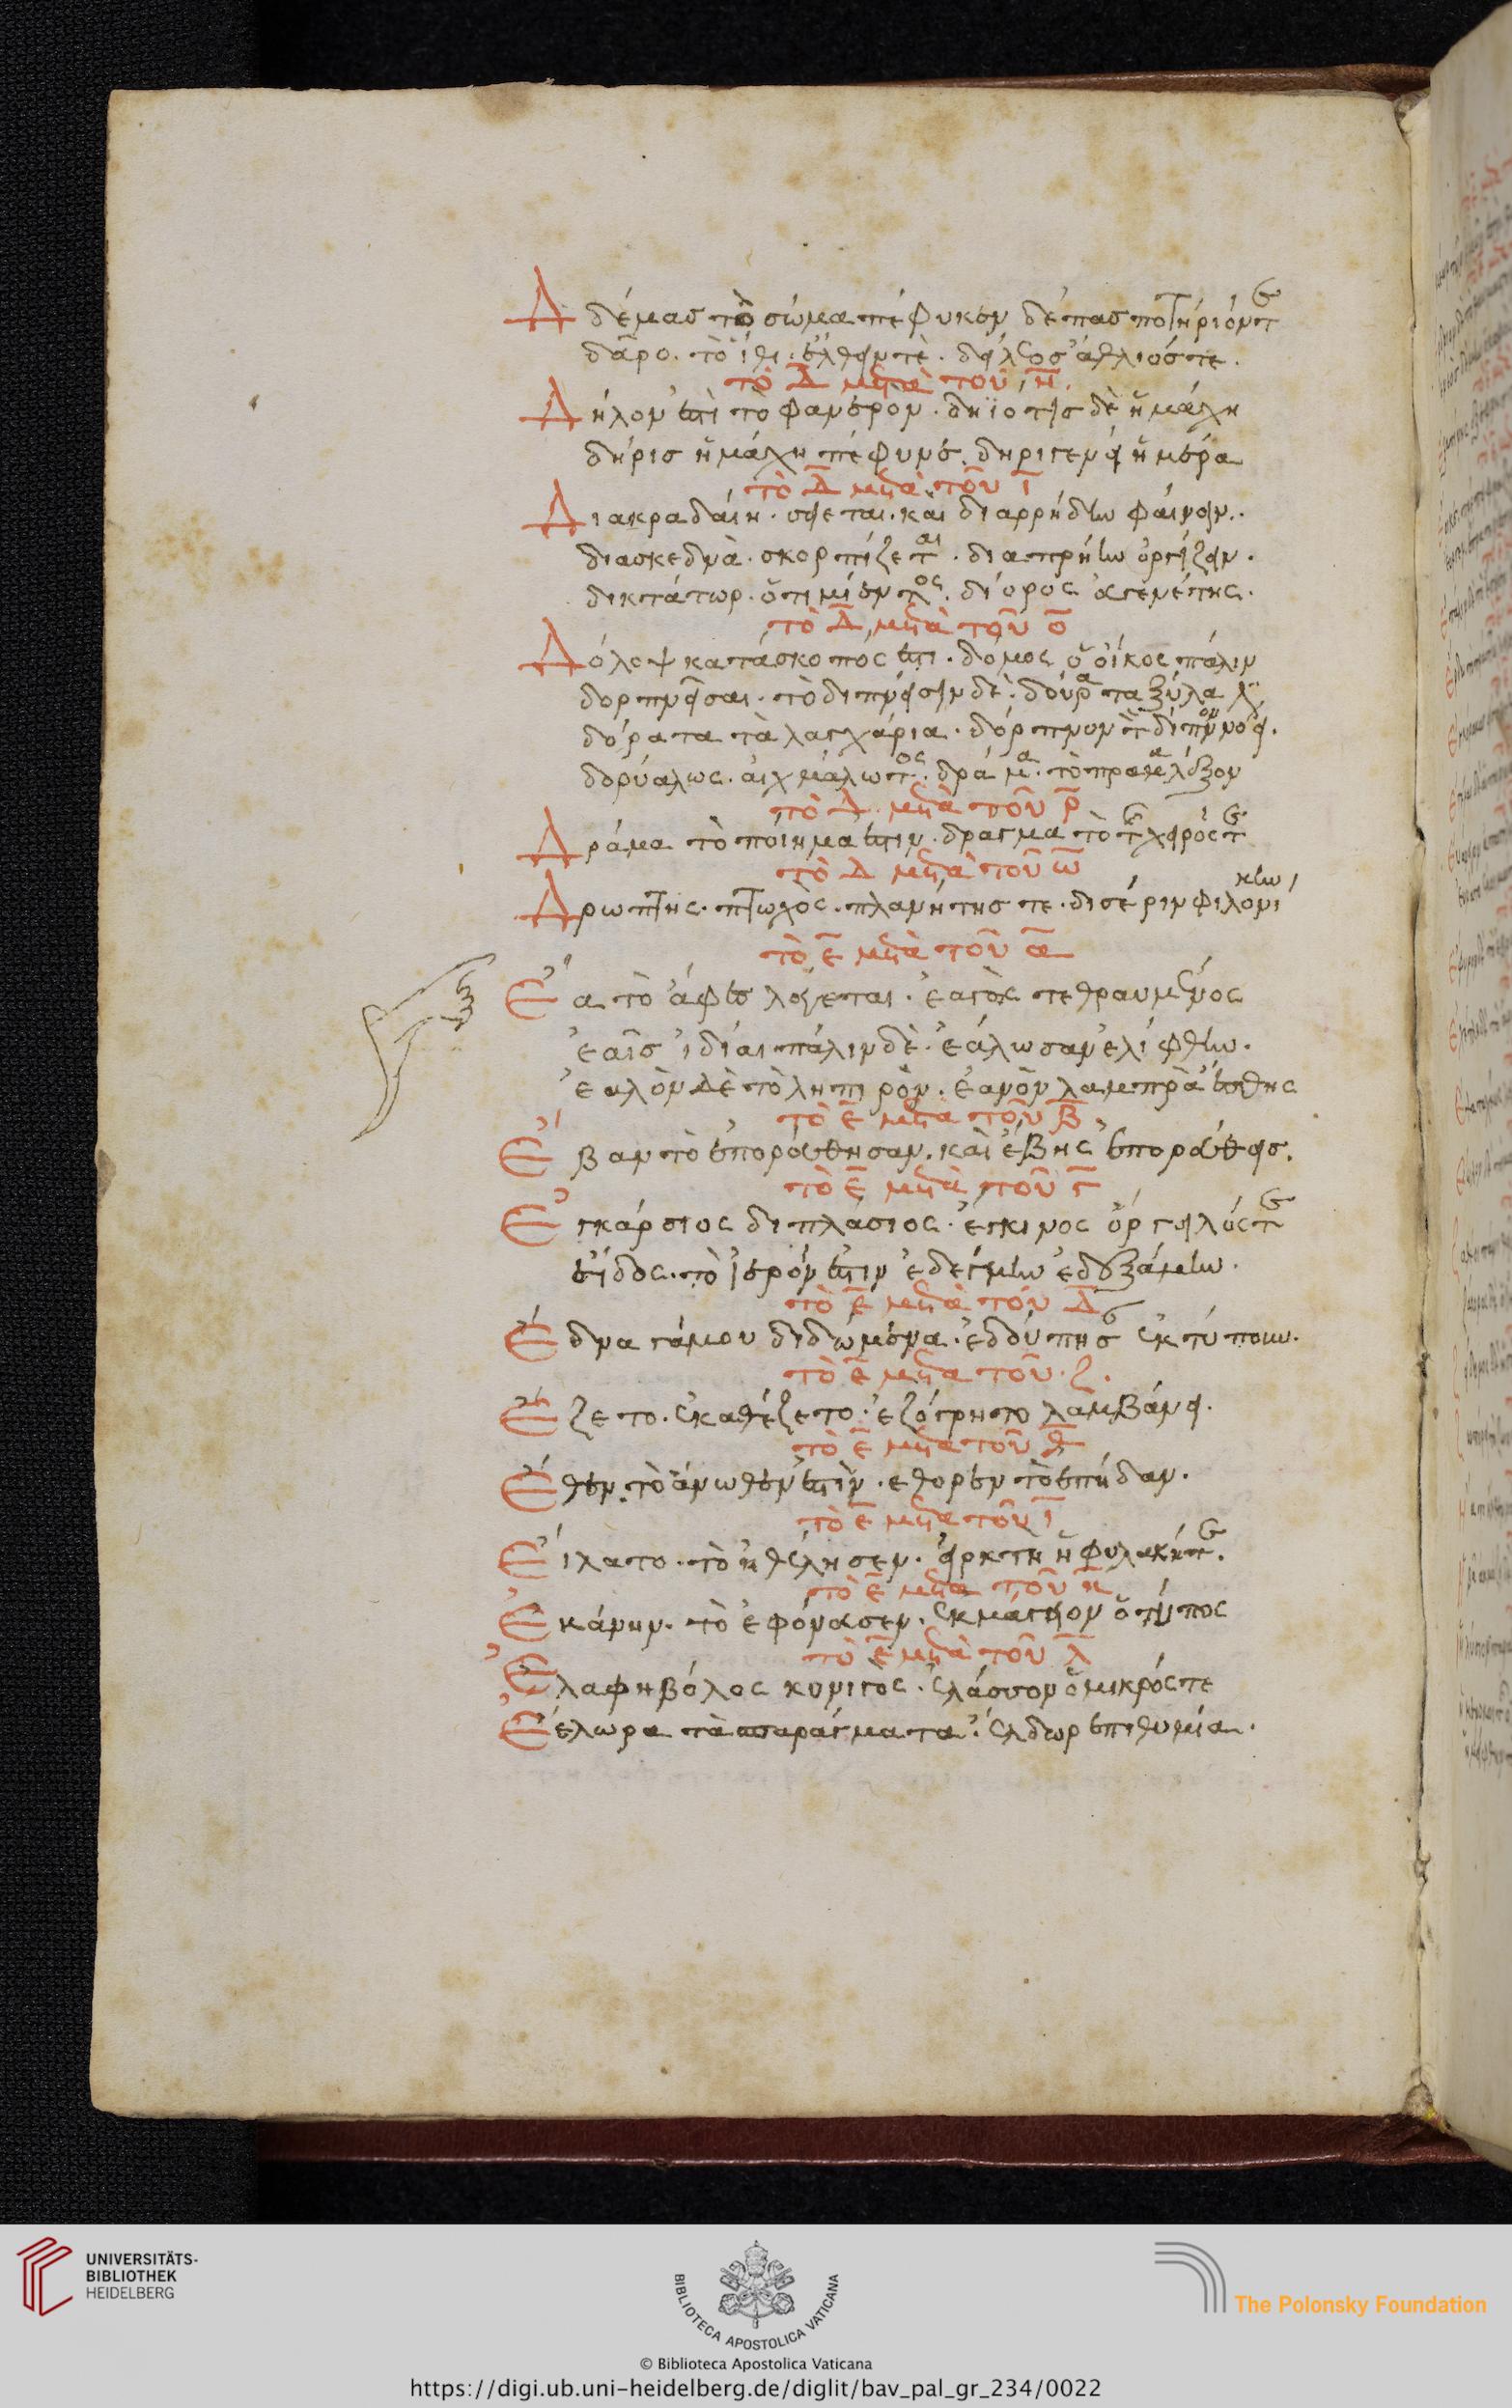 δέμας τὸ σῶμα πέφυκεν δέπας ποτήριόν τε
δεῦρο. τὸ ἴθι. ἐλθεῖν τὲ. δείλεος ἄθλιός τε.
τὸ Δ μετὰ τοῦ η
Δῆλον ἐστὶ τὸ φανερόν. δηϊοτὶς δὲ ἡ μάχη
δῆρις ἡ μάχη πέφυνε. δηριγενεῖ ἡμέρα
τὸ Δ μετὰ τοῦ ι
Διακραδαίη. σείεται. καὶ διαρρήδην φαίνειν.
διασκεδνᾶ. σκορπίζεται. διαπρήην ὀργίζειν.
δικτάτωρ. δίορος ἀγενέτης.
τὸ Δ μετὰ τοῦ ο
Δόλοψ κατάσκοπός ἐστι. δόμος ὁ οἶκος πάλιν
δορπνῆσαι. τὸ διπνήσειν δὲ. δούρατα ξύλα
δόρατα τὰ λαγχάρια. δόρπνον
δορύαλως. αἰχμάλωτος. δράμα. τὸ
τὸ Δ μετὰ τοῦ ρ
Δράμα τὸ ποίημα ἐστιν. δραγμα τὸ τῆς χειρός τε
τὸ Δ μετὰ τοῦ ω
Δρώπτης. πτωχός. πλανήτης τε. δισέριν φιλονικην
τὸ ε μετὰ τοῦ α
Ἔα τὸ ἄφες λέγεται. ἐαγὸς τεθραυμένος
ἐαῖς ἰδίαι πάλιν δὲ. ἑάλωσαν ἐλίφθην.
ἐαλὸν δὲ τὸ λητιρὸν. ἑανὸν λαμπρὰ ἐσθης
τὸ ε μετὰ τοῦ β
Ἔβαν τὸ ἐπορεύθησαν. καὶ ἔβης ἐπορεύθεις.
τὸ ε μετὰ τοῦ γ
Ἐγκάρσιος διπλάσιος. ἔγκινος ὀργηλός τε
τὸ ἱερόν ἐστιν ἐδέγμην ἐδεξάμην.
τὸ ε μετὰ τοῦ Δ
Ἔδνα γάμου διδώμενα. ἐδούπησε ἐκτύπουν.
τὸ ε μετὰ τοῦ ζ
Ἕζετο. ἐκαθέζετο. ἐζώγρησε λαμβάνει.
τὸ ε μετὰ τοῦ θ
Ἔθεν τὸ ἄνωθεν ἐστὶν. ἐθορεν τὸ ἐπήδαν.
τὸ ε μετὰ τοῦ ι
Εἵλατο. τὸ ἠθέλησεν. εἱρκτὴ ἡ φυλακή τε.
τὸ ε μετὰ τοῦ κ
Ἐκάνην. τὸ ἐφόνασεν. ἐκμαγεῖον ὁ τύπος
τὸ ε μετὰ τοῦ λ
Ἐλαφηβόλος κυνιγος. ἔλασσον ὁ μικρός τε
Ἕελωρα τὰ σπαράγματα. ἔελδωρ ἐπιθυμία.
UNIVERSITÄTS-
BIBLIOTHEK
HEIDELBERG
BIBLIOTECA APOSTOLICA VATICANA
The Polonsky Foundation
© Biblioteca Apostolica Vaticana
https://digi.ub.uni-heidelberg.de/diglit/bav_pal_gr_234/0022